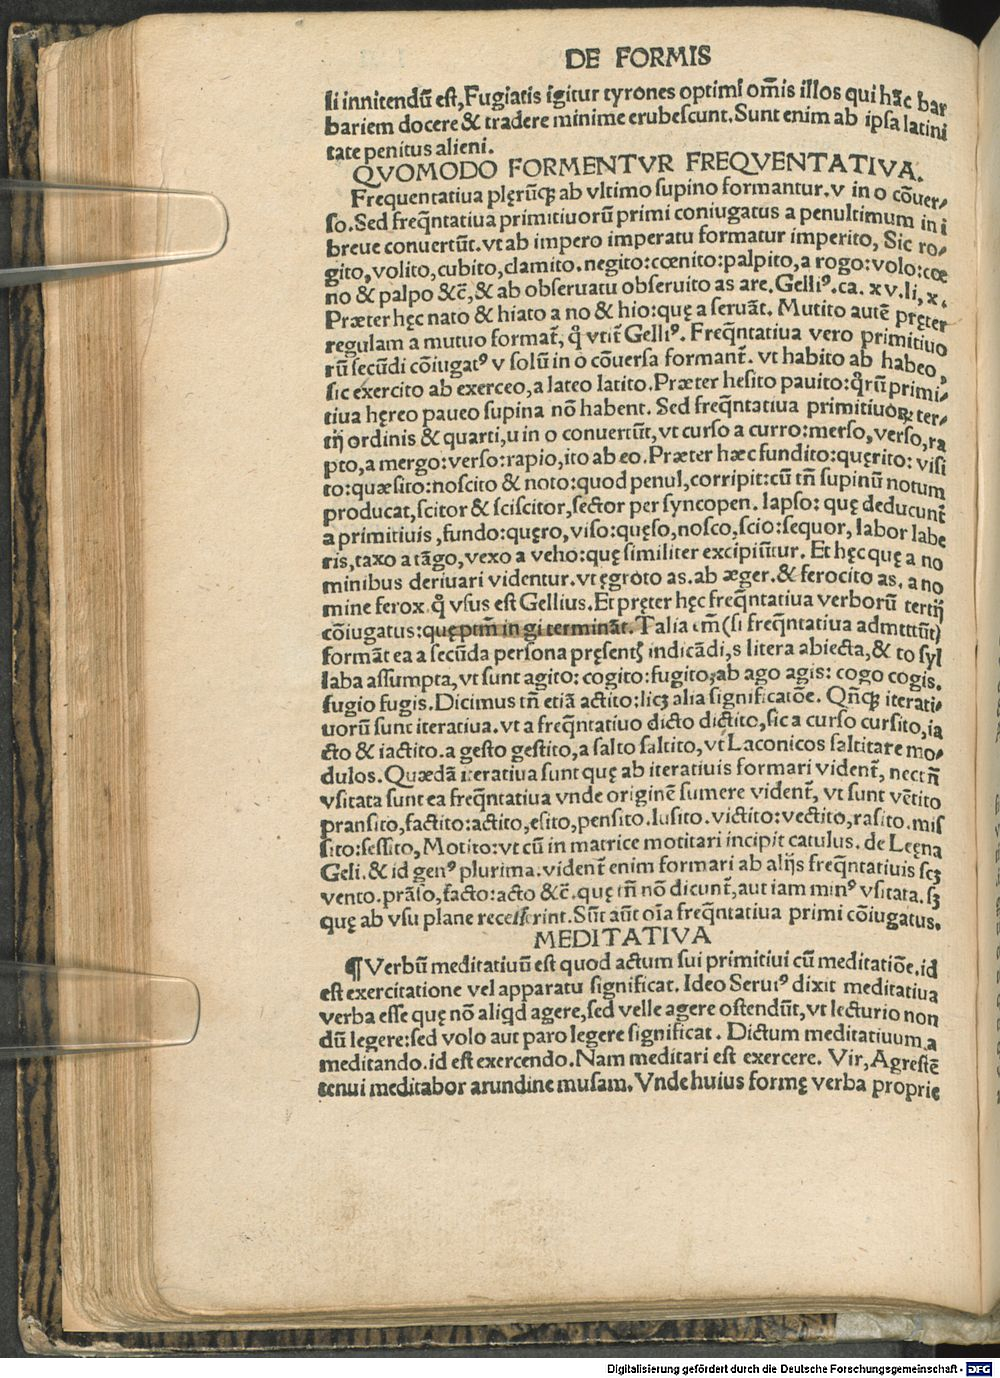 DE FORMIS
li innitendū eſt, Fugiatis igitur tyrones optimi om̄is illos qui hāc bar
bariem docere & tradere minime erubeſcunt. Sunt enim ab ipſa latini
tate penitus alieni.
QVOMODO FORMENTVR FREQVENTATIVA.
Frequentatiua plęrūqꝫ ab vltimo ſupino formantur. v in o cōuer/
ſo. Sed freq̄ntatiua primitiuorū primi coniugatus a penultimum in i
breue conuertūt. vt ab impero imperatu formatur imperito, Sic ro/
gito, volito, cubito, clamito. negito: cœnito: palpito, a rogo: volo: cœ
no & palpo &c̄, & ab obſeruatu obſeruito as are. Gelliꝰ. ca. xv. li, x.
Præter hęc nato & hiato a no & hio: quę a ſeruāt. Mutito autē pręter
regulam a mutuo format̄, q̊ vtit̄ Gelliꝰ. Freq̄ntatiua vero primitiuo
rū ſecūdi cōiugatꝰ v ſolū in o cōuerſa formant̄. vt habito ab habeo,
ſic exercito ab exerceo, a lateo latito. Præter heſito pauito: q̄rū primi/
tiua hęreo paueo ſupina nō habent. Sed freq̄ntatiua primitiuoꝝ ter/
tij ordinis & quarti, u in o conuertūt, vt curſo a curro: merſo, verſo, ra
pto, a mergo: verſo: rapio, ito ab eo. Præter hæc fundito: quęrito: viſi
to: quæſito: noſcito & noto: quod penul, corripit: cū tn̄ ſupinū notum
producat, ſcitor & ſciſcitor, ſector per ſyncopen. lapſo: quę deducunt̄
a primitiuis, fundo: quęro, viſo: quęſo, noſco, ſcio: ſequor, labor labe
ris, taxo a tāgo, vexo a veho: quę ſimiliter excipiūtur. Et hęc quę a no
minibus deriuari videntur. vt ęgroto as. ab æger. & ferocito as. a no
mine ferox. q̊ vſus eſt Gellius. Et pręter hęc freq̄ntatiua verborū tertij
cōiugatus: quę ptm̄ in gi termināt. Talia im̄ (ſi freq̄ntatiua admtttūt)
formāt ea a ſecūda perſona pręſentꝭ indicādi, s litera abiecta, & to ſyl
laba aſſumpta, vt ſunt agito: cogito: fugito, ab ago agis: cogo cogis.
fugio fugis. Dicimus tn̄ etiā actito: licꝫ alia ſignificatōe. Qn̄qꝫ iterati/
uorū ſunt iteratiua. vt a freq̄ntatiuo dicto dictito, ſic a curſo curſito, ia
cto & iactito. a geſto geſtito, a ſalto ſaltito, vt Laconicos ſaltitare mo/
dulos. Quædā iteratiua ſunt quę ab iteratiuis formari vident̄, nec tn̄
vſitata ſunt ea freq̄ntatiua vnde originē ſumere vident̄, vt ſunt vētito
pranſito, factito: actito, eſito, penſito. luſito. victito: vectito, raſito. miſ
ſito: ſeſſito, Motito: vt cū in matrice motitari incipit catulus. de Leęna
Geli. & id genꝰ plurima. vident̄ enim formari ab alijs freq̄ntatiuis ſcꝫ
vento. prāſo, facto: acto &c̄. quę tn̄ nō dicunt̄, aut iam minꝰ vſitata. ſꝫ
quę ab vſu plane receſſerint. Sūt aūt oīa freq̄ntatiua primi cōiugatus.
MEDITATIVA
¶ Verbū meditatiuū eſt quod actum ſui primitiui cū meditatiōe. id
eſt exercitatione vel apparatu ſignificat. Ideo Seruiꝰ dixit meditatiua
verba eſſe quę nō aliqd agere, ſed velle agere oſtendūt, vt lecturio non
dū legere: ſed volo aut paro legere ſignificat. Dictum meditatiuum a
meditando. id eſt exercendo. Nam meditari eſt exercere. Vir, Agreſtē
tenui meditabor arundine muſam. Vnde huius formę verba proprie
Digitalisierung gefördert durch die Deutsche Forschungsgemeinschaft - DFG